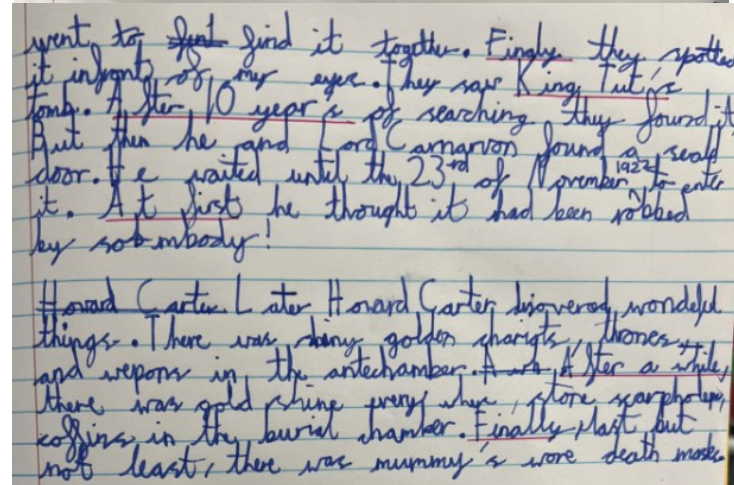 went to find it together. Finglu they spotted
it infront of my eyes. They saw King Tut's
tomb. After 10 year's of searching they found it
But then he and Lord Carnarvon found a seald
door. He waited until the 23rd of November 1922 to enter
it. At first he thought it had been robbed
by sombody!
Howard Carter Later Howard Carter disovered wondeful
things. There was shiny golden chariots, thrones
and wepons in the antechamber. After a while,
there was gold shine evrey wher, stone
coffins in the burial chamber. Finally, last but
not least, there was mummy's wore death masks